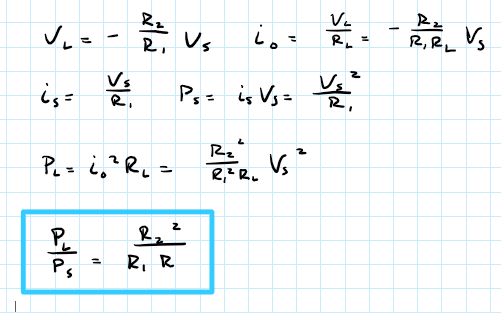 V_L = - R_2/R_1 V_s   i_o = V_L/R_L = - R_2/(R_1 R_L) V_s
i_s = V_s/R_1   P_s = i_s V_s = V_s^2/R_1
P_L = i_o^2 R_L = R_2^2/(R_1^2 R_L) V_s^2
P_L/P_s = R_2^2/(R_1 R)